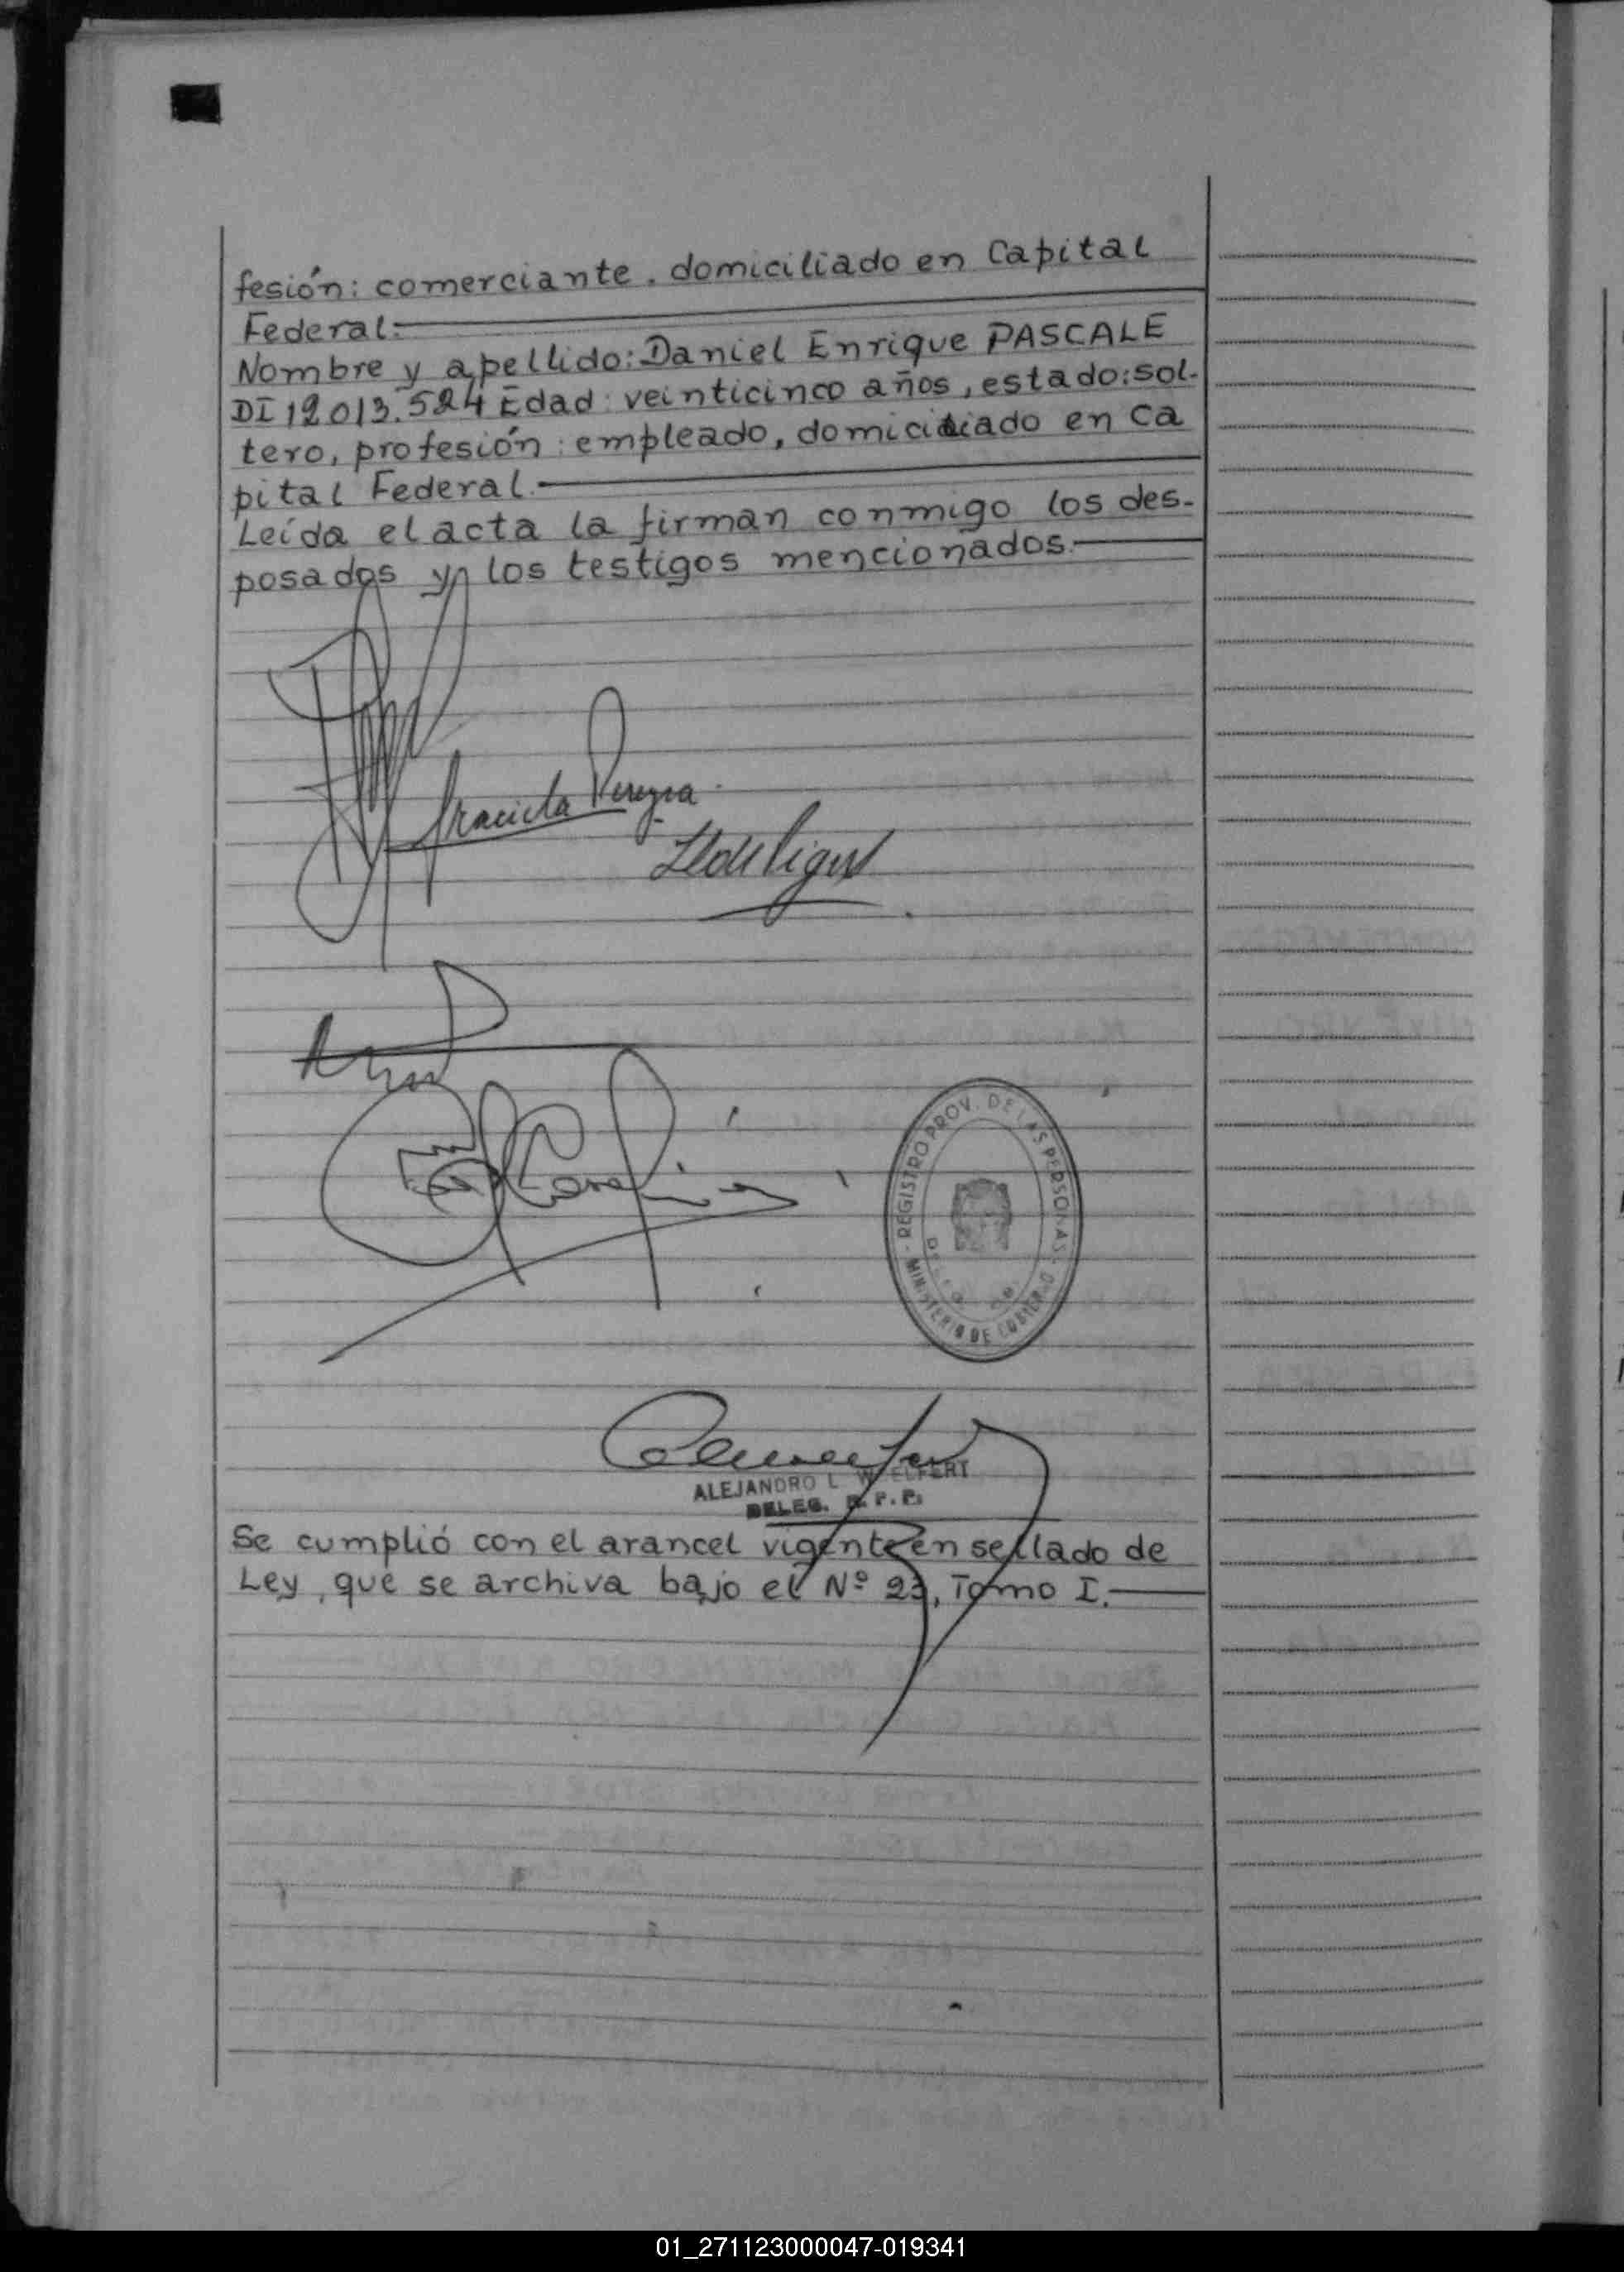 fesión: comerciante, domiciliado en Capital
Federal.
Nombre y apellido: Daniel Enrique PASCALE
DI 12.013.524 Edad: veinticinco años, estado: sol-
tero, profesión: empleado, domiciliado en Ca
pital Federal.
Leída el acta la firman conmigo los des-
posados y los testigos mencionados.
Graciela Pereyra
REGISTRO PROV. DE LAS PERSONAS
MINISTERIO DE GOBIERNO
ALEJANDRO L. WOELFERT
DELEG. R. P. P.
Se cumplió con el arancel vigente en sellado de
Ley, que se archiva bajo el Nº 23, Tomo I.
01_271123000047-019341